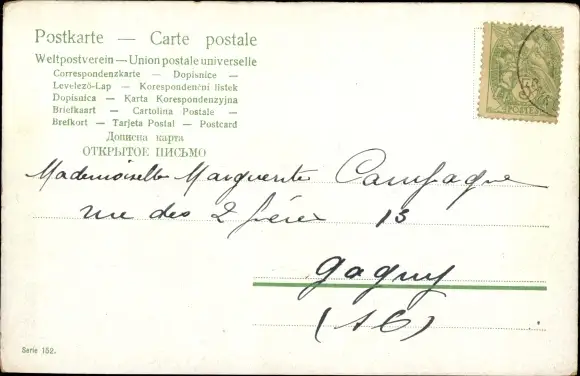 Postkarte — Carte postale
Weltpostverein — Union postale universelle
Correspondenzkarte — Dopisnice —
Levelező-Lap — Korespondenční listek
Dopisnica — Karta Korespondenzyjna
Briefkaart — Cartolina Postale —
Brefkort — Tarjeta Postal — Postcard
Дописна карта
ОТКРЫТОЕ ПИСЬМО
Mademoiselle Marguerite Campagne
rue des 2 frères 13
Gagny
Serie 152.
5
POSTES